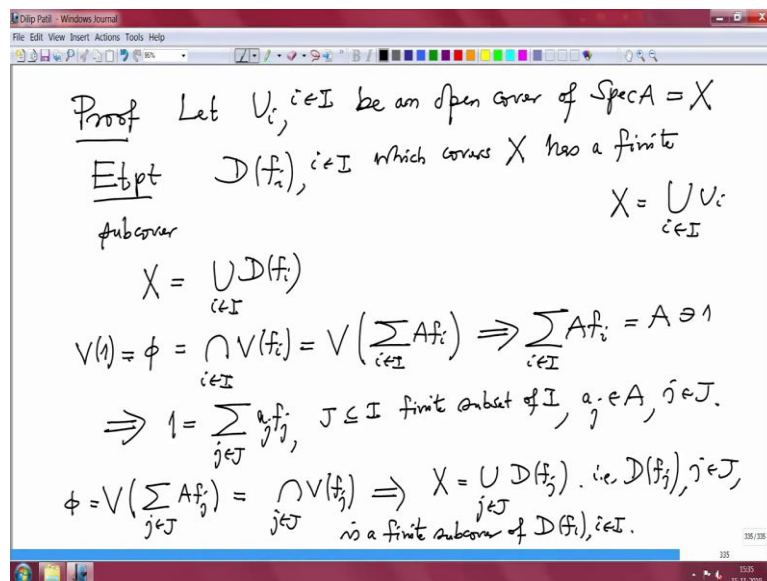 Dilip Patil - Windows Journal
File Edit View Insert Actions Tools Help
Proof Let U_i, i∈I be an open cover of Spec A = X
Etpt D(f_i), i∈I which covers X has a finite
subcover X = ⋃_{i∈I} U_i
X = ⋃_{i∈I} D(f_i)
V(1) = ϕ = ⋂_{i∈I} V(f_i) = V(∑_{i∈I} Af_i) ⟹ ∑_{i∈I} Af_i = A ∋ 1
⟹ 1 = ∑_{j∈J} a_j f_j, J ⊆ I finite subset of I, a_j ∈ A, j∈J.
ϕ = V(∑_{j∈J} Af_j) = ⋂_{j∈J} V(f_j) ⟹ X = ⋃_{j∈J} D(f_j). i.e. D(f_j), j∈J,
is a finite subcover of D(f_i), i∈I.
335/335
335
15:35